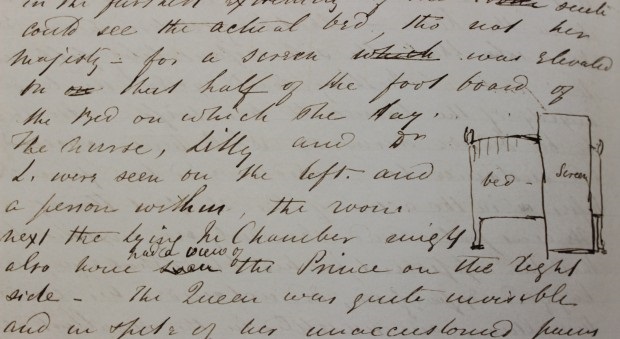 in the furthest extremity of the suite
could see the actual bed, tho not her
majesty - for a screen which was elevated
on that half of the foot board of
the Bed on which she lay.
The nurse, Lilly and Dr
L. were seen on the left. and
a person within, the room
next the lying In Chamber might
also have seen had a view of the Prince on the right
side - The Queen was quite invisible
and in spite of her unaccustomed pains
bed -
Screen